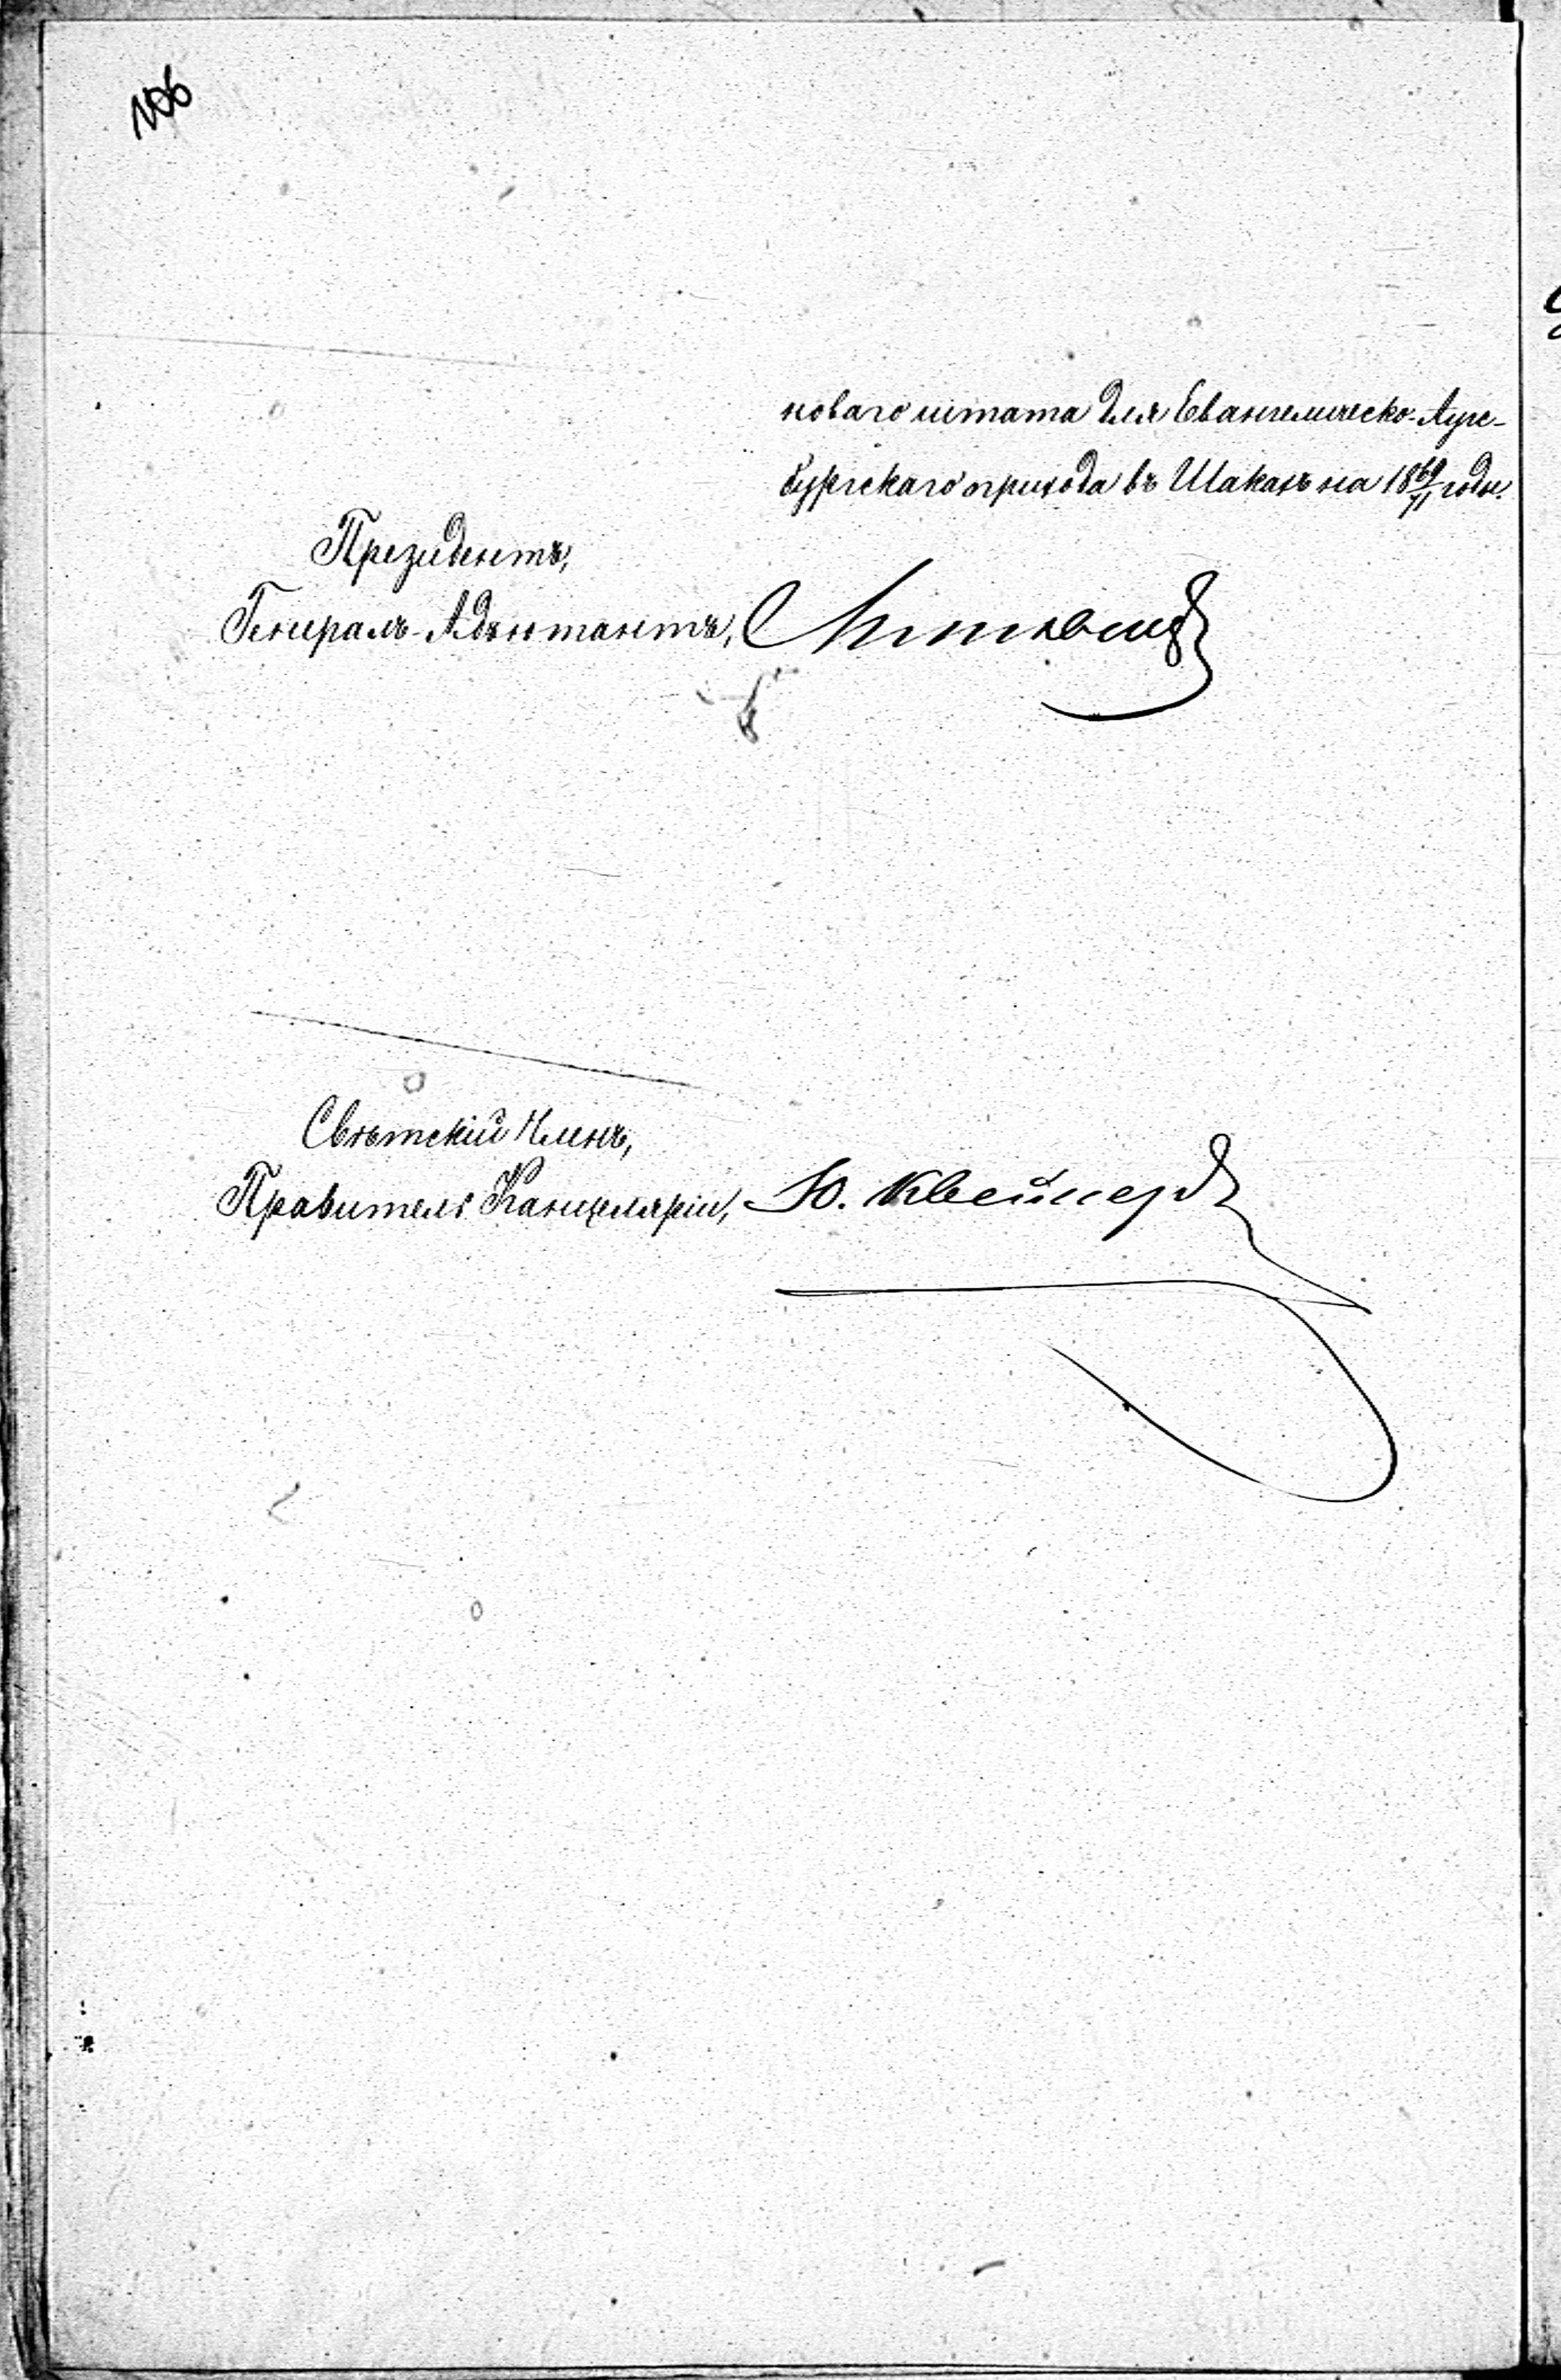 106
новаго штата для Евангелическо-Аугс-
бургскаго прихода въ Шакахъ на 18 69/71 годы.
Президентъ,
Генералъ-Адъютантъ,
Свѣтскій Членъ,
Правитель Канцеляріи, Ю.